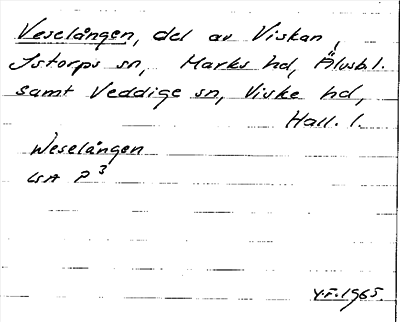 Veselången, del av Viskan,
Istorps sn, Marks hd, Älvsb. l.
samt Veddige sn, Viske hd,
Hall. l.
Weselången
LSA P3
Y.F. 1965.